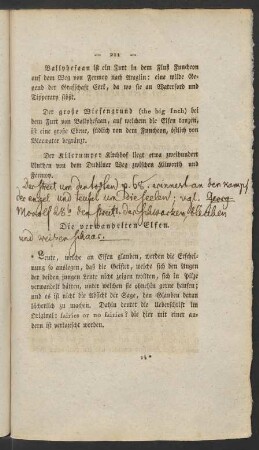 — 211 —
Ballyhefaan ist ein Furt in dem Fluß Funcheon
auf dem Weg von Fermoy nach Araglin: eine wilde Ge-
gend der Grafschaft Cork, da wo sie an Waterford und
Tipperary stößt.
Der große Wiesengrund (the big Inch) bei
dem Furt von Ballyhefaan, auf welchem die Elfen tanzen,
ist eine große Ebene, südlich von dem Funcheon, östlich von
begränzt.
Der Kilcrumper Kirchhof liegt etwa zweihundert
Ruthen von dem Dubliner Weg zwischen Kilworth und
Fermoy.
Der streit um den todten p. 66. erinnert an den kampf
der engel und teufel um die seelen; vgl. Georg
28b den streit der schwarzen
und weißen schaar.
Die verwandelten Elfen.
Leute, welche an Elfen glauben, werden die Erschei-
nung so auslegen, daß die Geister, welche sich den Augen
der beiden jungen Leute nicht zeigen wollten, sich in Pilze
verwandelt hätten, unter welchen sie ohnehin gerne hausen;
und es ist nicht die Absicht der Sage, den Glauben daran
lächerlich zu machen. Dahin deutet die Ueberschrift im
Original: fairies or no fairies? die hier mit einer an-
dern ist vertauscht worden.
14*